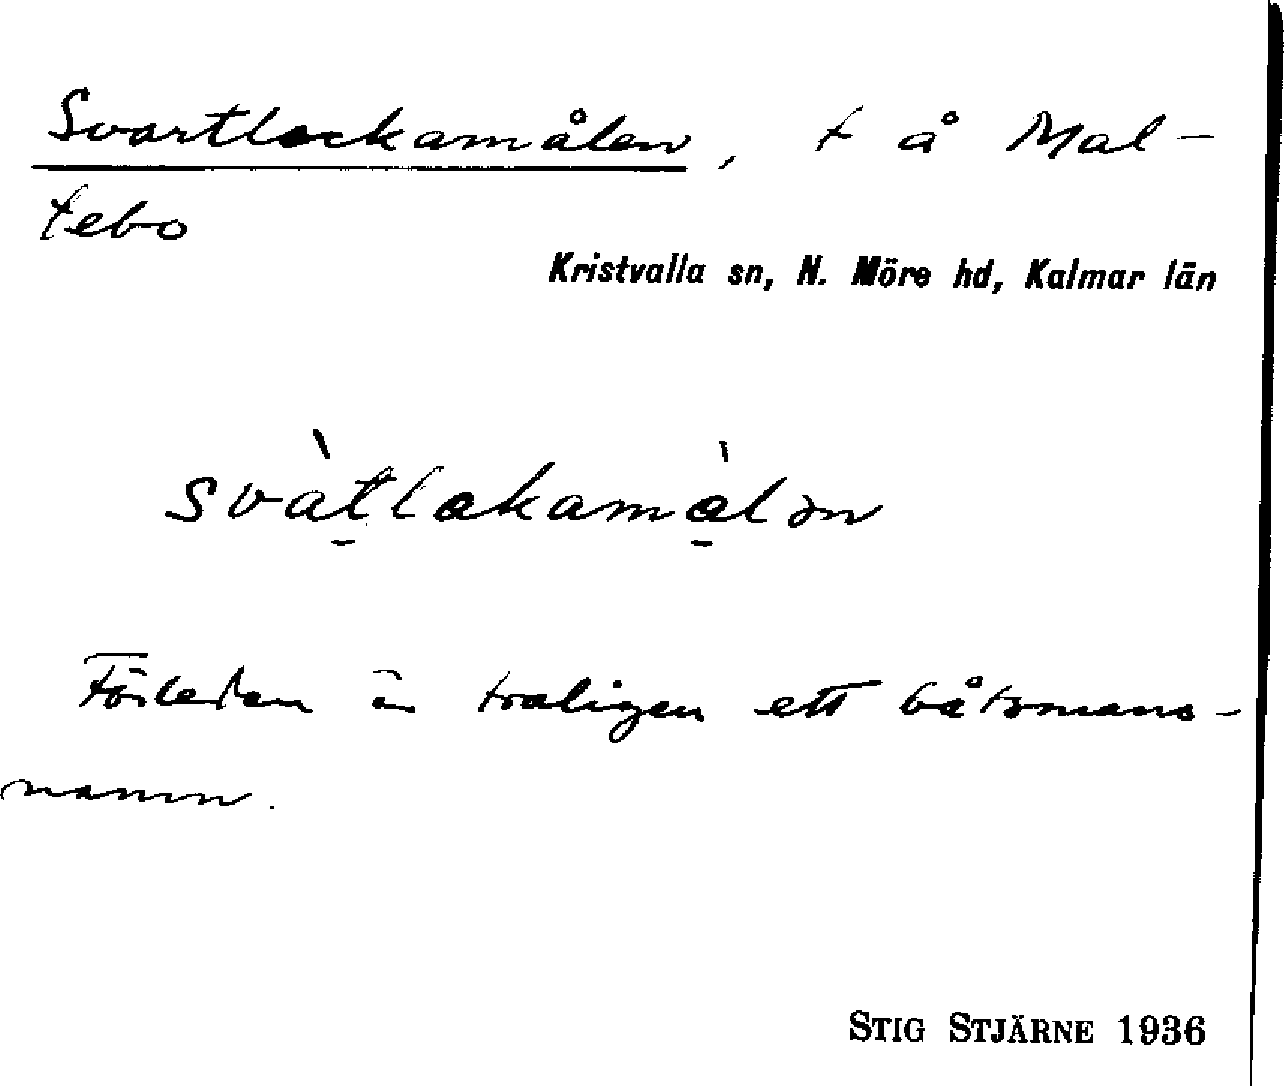 Svartlockamålen, t å Mal-
tebo
Kristvalla sn, N. Möre hd, Kalmar län
svàtlakamàlən
Förleden är troligen ett båtsmans-
namn.
STIG STJÄRNE 1936